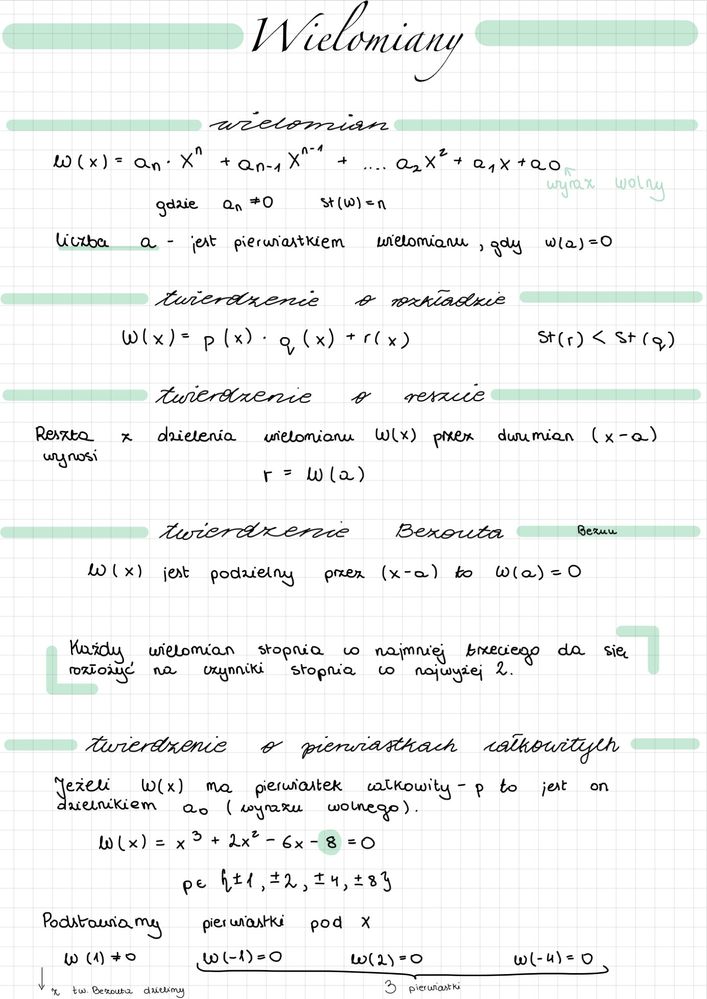 Wielomiany
wielomian
W(x) = aₙ · xⁿ + aₙ₋₁ xⁿ⁻¹ + .... a₂x² + a₁x + a0
wyraz wolny
gdzie aₙ ≠ 0 st(w) = n
liczba a - jest pierwiastkiem wielomianu, gdy w(a) = 0
twierdzenie o rozkładzie
W(x) = p(x) · q(x) + r(x) st(r) < st(q)
twierdzenie o reszcie
Reszta z dzielenia wielomianu W(x) przez dwumian (x-a)
wynosi
r = W(a)
twierdzenie Bezouta Bezuu
W(x) jest podzielny przez (x-a) to W(a) = 0
Każdy wielomian stopnia co najmniej trzeciego da się
rozłożyć na czynniki stopnia co najwyżej 2.
twierdzenie o pierwiastkach całkowitych
Jeżeli W(x) ma pierwiastek całkowity - p to jest on
dzielnikiem a₀ (wyrazu wolnego).
W(x) = x³ + 2x² - 6x - 8 = 0
p ∈ {±1, ±2, ±4, ±8}
Podstawiamy pierwiastki pod x
W(1) ≠ 0 W(-1) = 0 W(2) = 0 W(-4) = 0
↓ z tw. Bezouta dzielimy 3 pierwiastki